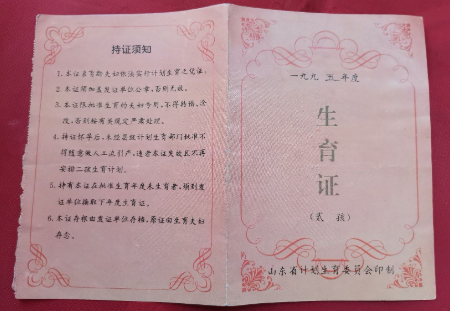 持证须知
1. 本证是育龄夫妇依法实行计划生育之凭证。
2. 本证须加盖发证单位公章,否则无效。
3. 本证限批准生育的夫妇专用,不得转借、涂
改,否则按有关规定严肃处理。
4. 持证怀孕后,未经县级计划生育部门批准不
得随意做人工流引产,违者本证失效且不再
安排二孩生育计划。
5. 持有本证在批准生育年度未生育者,须到发
证单位换取下年度生育证。
6. 本证存根由发证单位存档,原证由生育夫妇
存忘。
一九九五年度
生育证
(贰孩)
山东省计划生育委员会印制